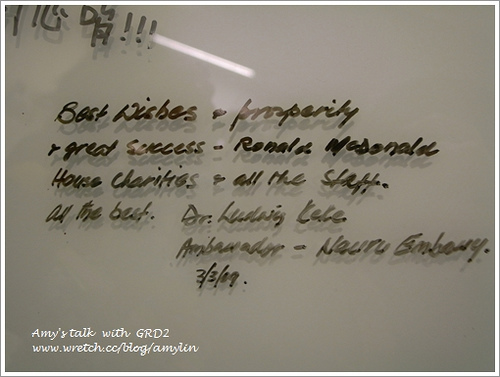 心留!!!
Best Wishes & prosperity
& great Success - Ronald McDonald
House Charities & all the Staff.
All the best. Dr. Ludwig Keke
Ambassador - Nauru Embassy.
3/3/09.
Amy's talk with GRD2
www.wretch.cc/blog/amylin